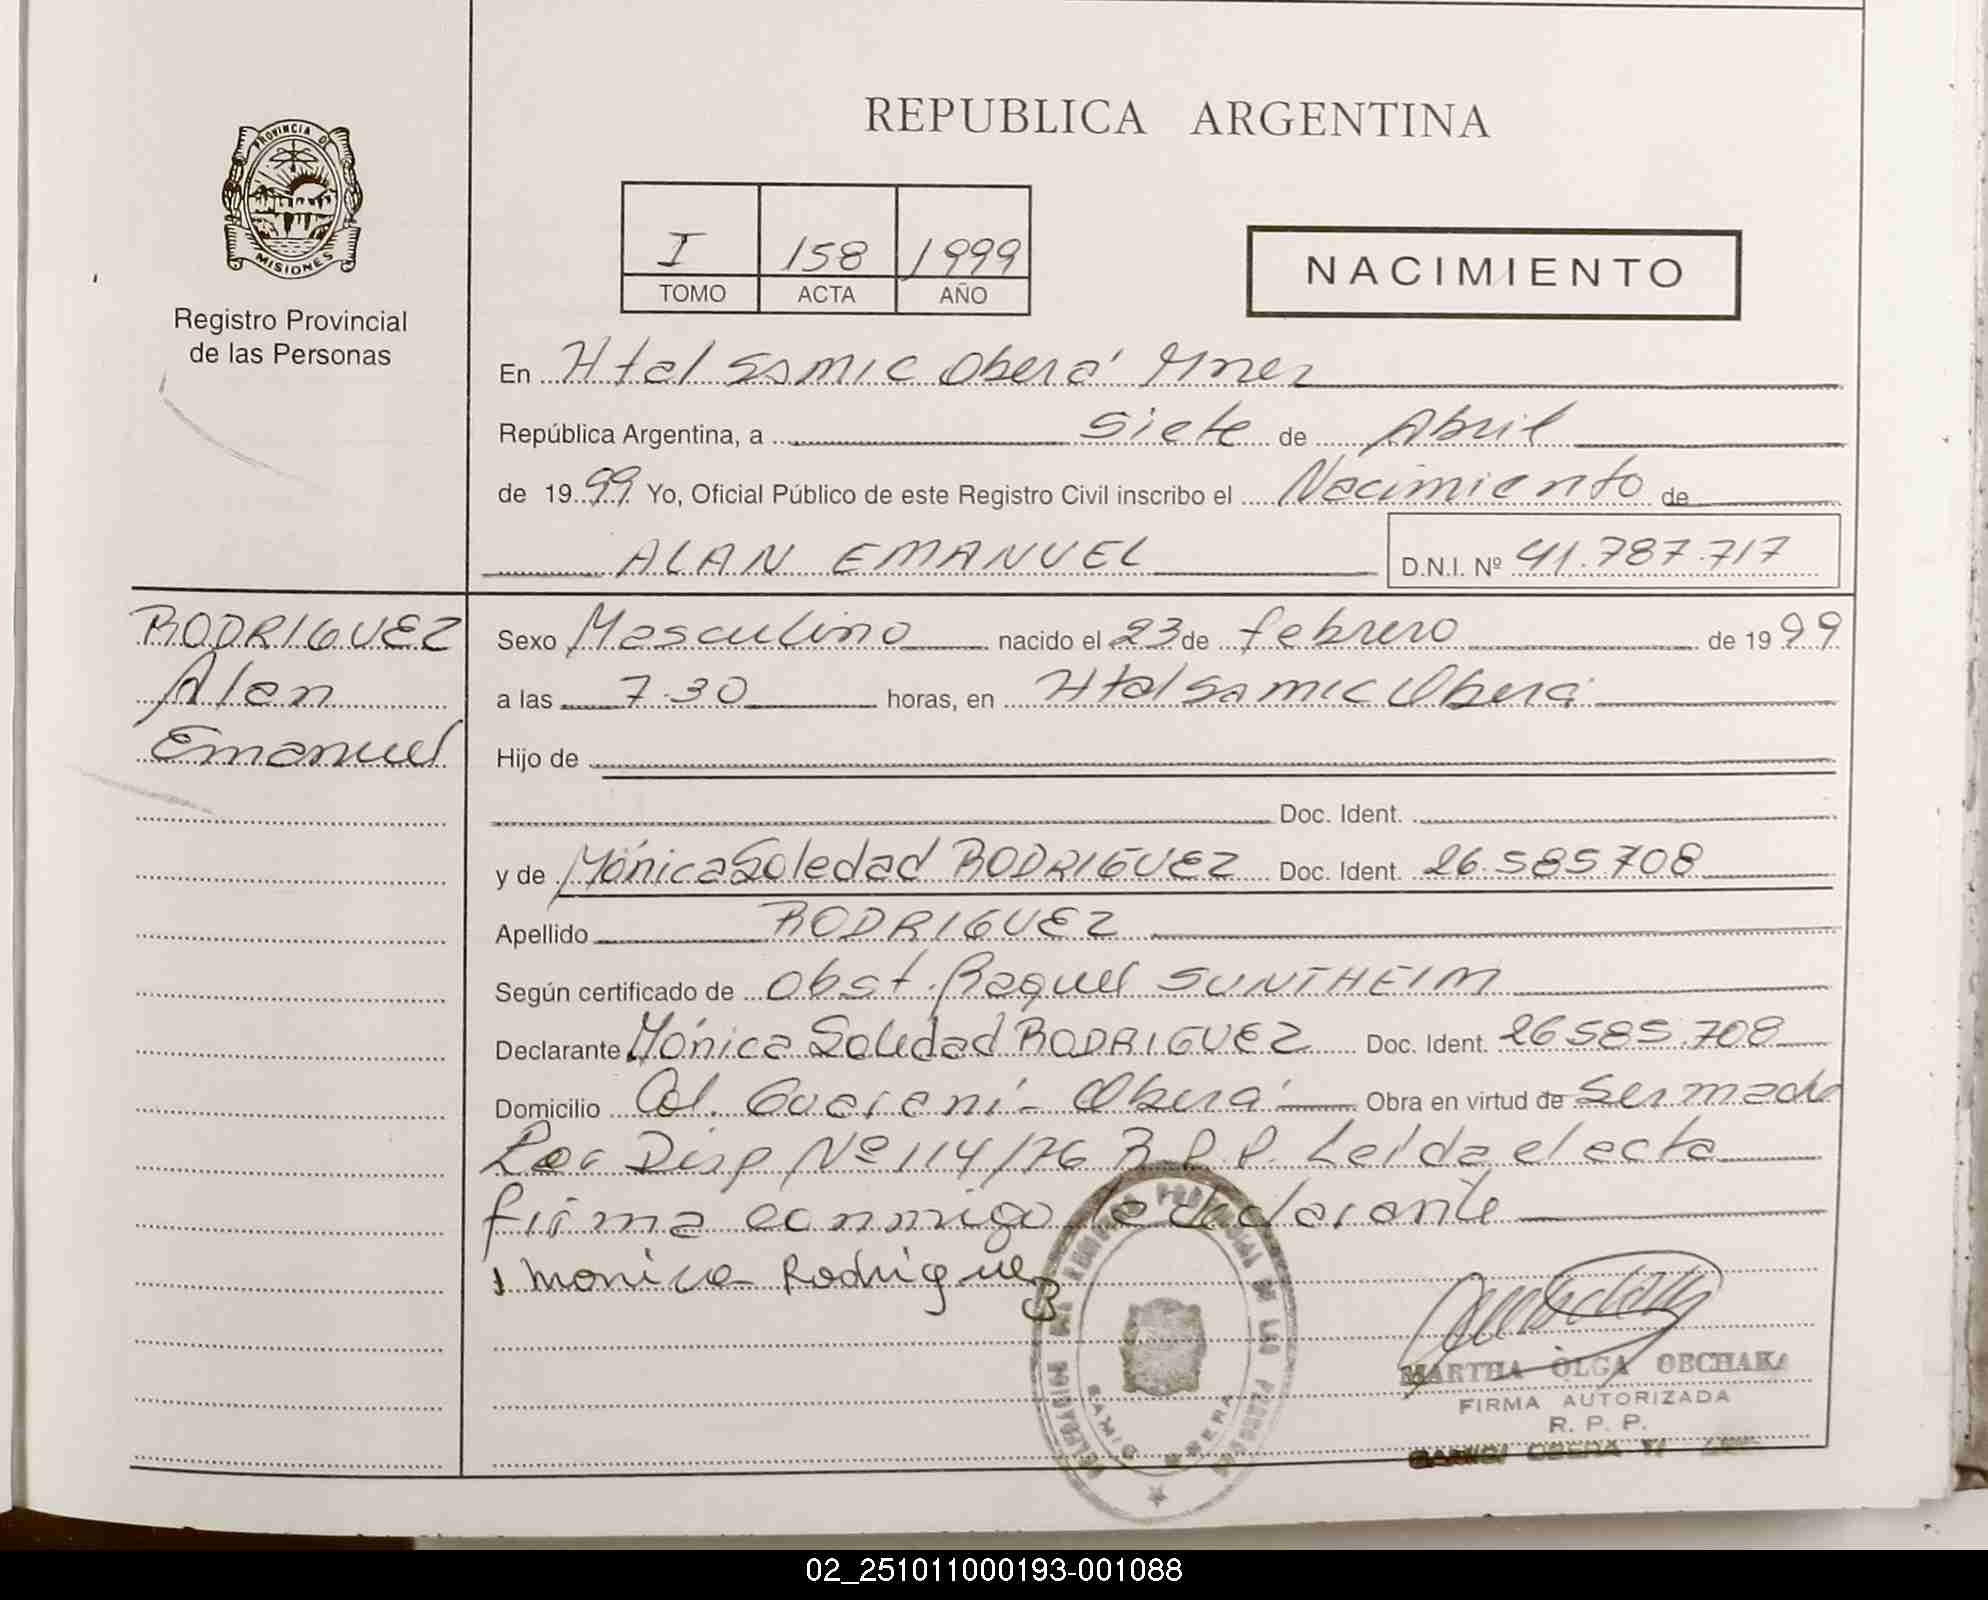 REPUBLICA ARGENTINA
PROVINCIA D
MISIONES
Registro Provincial
de las Personas
I 158 1999
TOMO ACTA AÑO
NACIMIENTO
En Htal Samic Oberá Mnes
República Argentina, a siete de Abril
de 1999 Yo, Oficial Público de este Registro Civil inscribo el Nacimiento de
ALAN EMANUEL D.N.I. Nº 41.787.717
RODRIGUEZ
Alan
Emanuel
Sexo Masculino nacido el 23 de febrero de 1999
a las 7.30 horas, en Htal Samic Oberá
Hijo de
Doc. Ident.
y de Mónica Soledad RODRIGUEZ Doc. Ident. 26.585.708
Apellido RODRIGUEZ
Según certificado de Obst. Raquel SUNTHEIM
Declarante Mónica Soledad RODRIGUEZ Doc. Ident. 26585.708
Domicilio Col. Guaraní - Oberá Obra en virtud de ser madre
Por Disp Nº 114/76 R.P.P. Leída el acta
firma conmigo la declarante
Monica Rodriguez
MARTHA OLGA OBCHAKA
FIRMA AUTORIZADA
R. P. P.
SAMIC OBERA
02_251011000193-001088